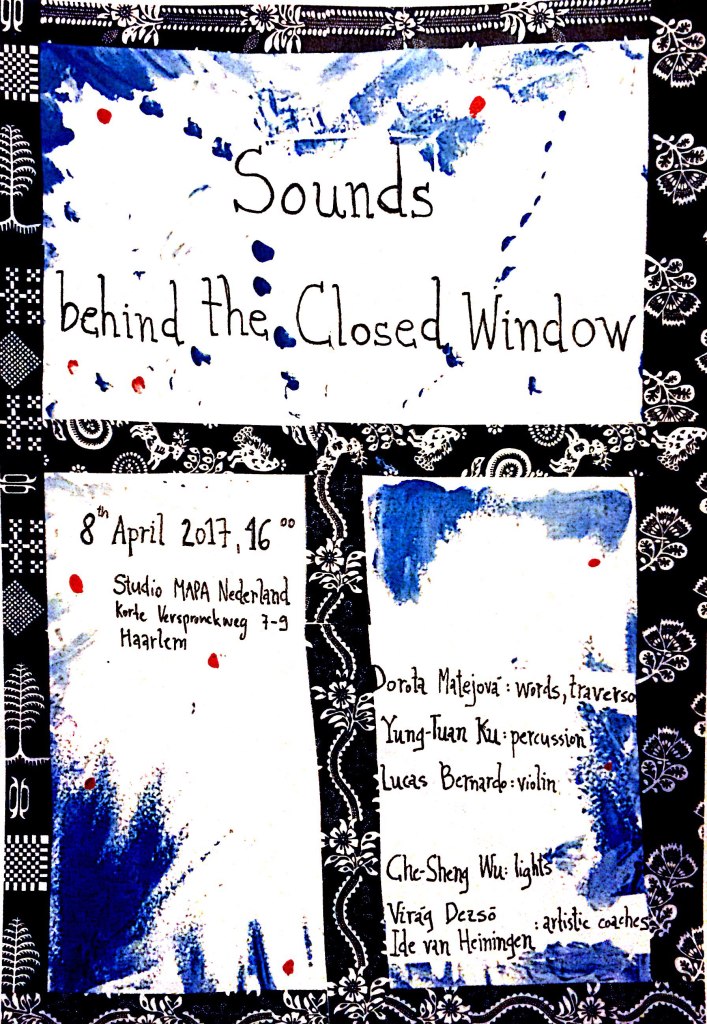 Sounds
behind the Closed Window
8th April 2017, 16 00
Studio MAPA Nederland
Korte Verspronckweg 7-9
Haarlem
Dorota Matejová: words, traverso
Yung-Tuan Ku: percussion
Lucas Bernardo: violin
Che-Sheng Wu: lights
Virág Dezsö
Ide van Heiningen : artistic coaches